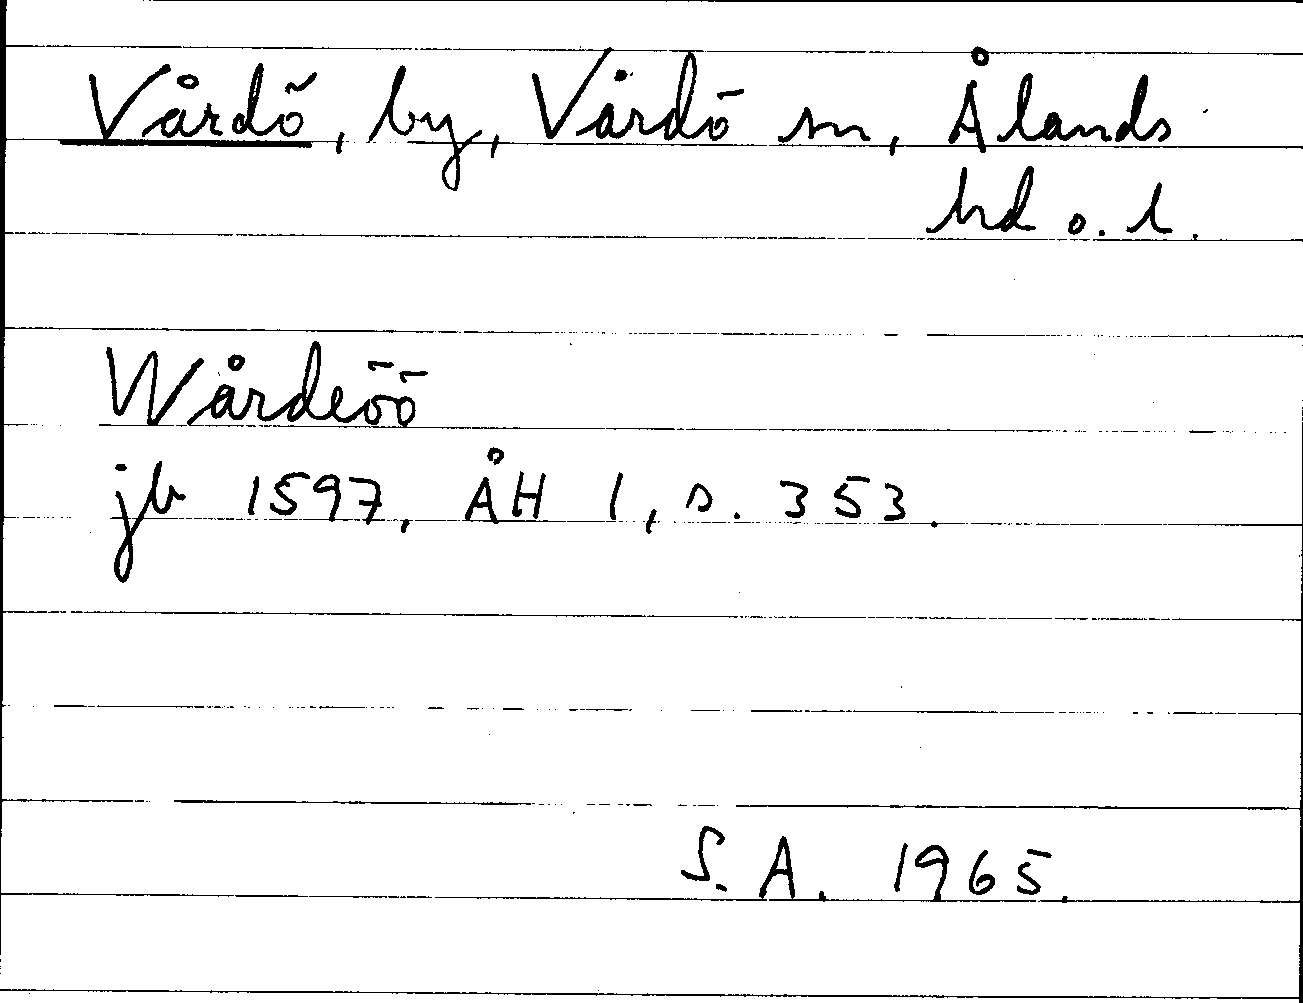 Vårdö, by, Vårdö sn, Ålands
hd o. l.
Wårdeöö
jb 1597, ÅH 1, s. 353.
S. A. 1965.